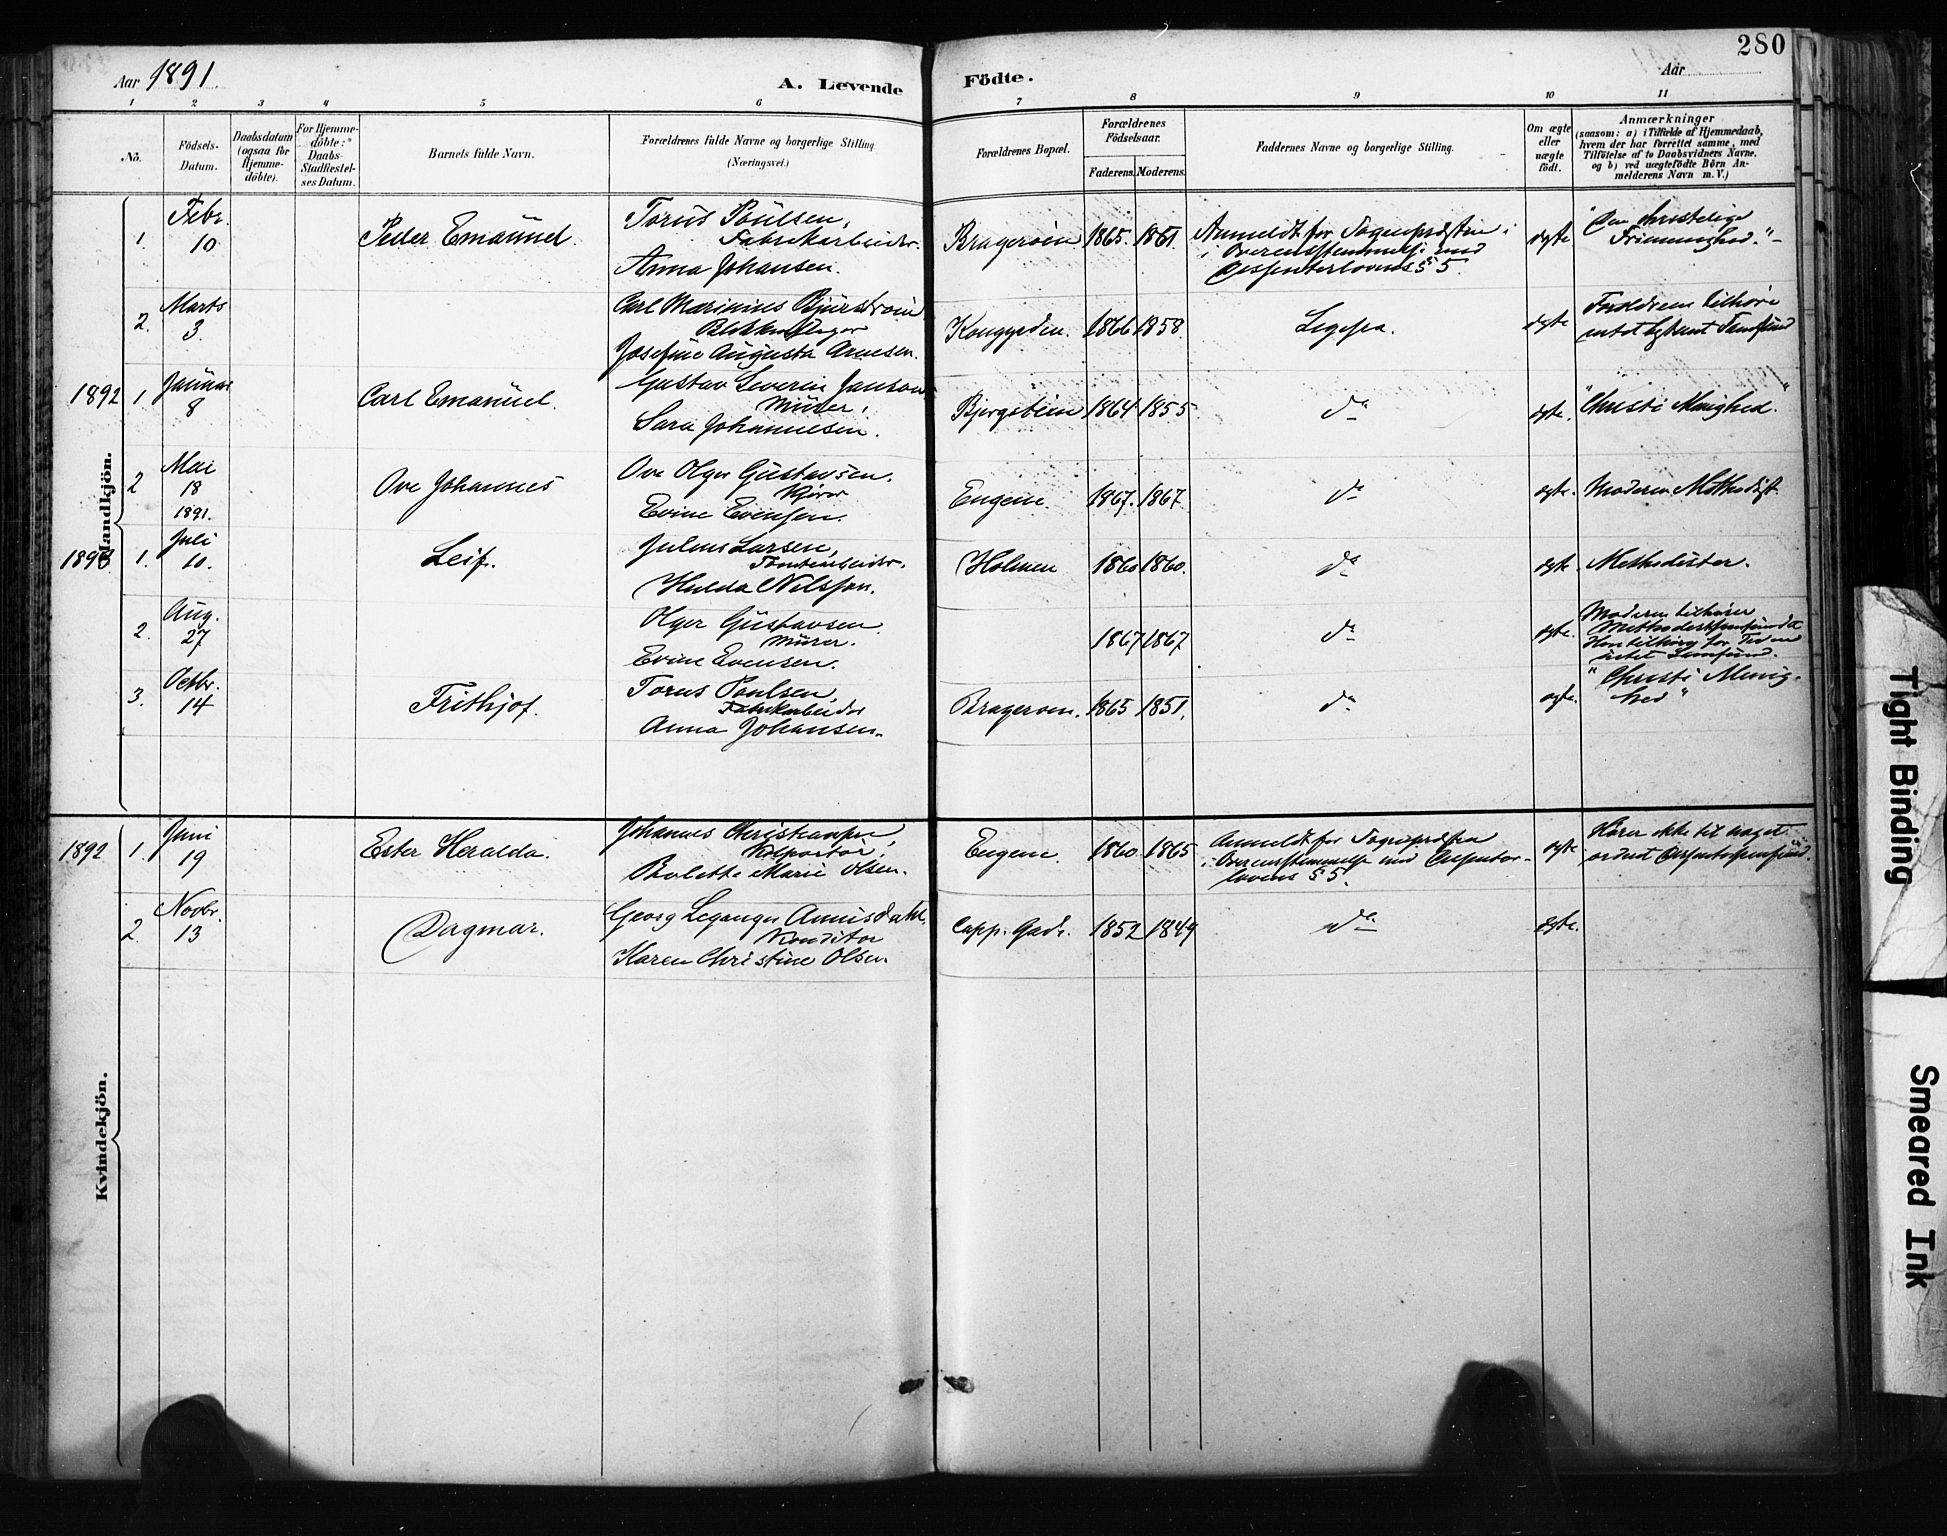 280
Aar 1891.
A. Levende
Födte.
Aar
1 2 3 4 5 6 7 8 9 10 11
No.
Födsels-
Datum.
Daabsdatum
(ogsaa for
Hjemme-
döbte).
For Hjemme-
döbte:
Daabs-
Stadfæstel-
ses Datum.
Barnets fulde Navn.
Forældrenes fulde Navne og borgerlige Stilling
(Næringsvei.)
Forældrenes Bopæl.
Forældrenes
Födselsaar.
Faderens. Moderens.
Faddernes Navne og borgerlige Stilling.
Om ægte
eller
uægte
födt.
Anmærkninger
(saasom: a) i Tilfælde af Hjemmedaab,
hvem der har forrettet samme, med
Tilföielse af to Daabsvidners Navne,
og b) ved uægtefödte Börn An-
melderens Navn m. V.)
Mandkjön.
1. Febr. 10
Peder Emanuel.
Torus Poulsen,
Fabrikarbeider.
Anna Johansen.
Bragerøen 1865. 1851.
Anmeldt for Sognepræsten i
Overensstemmelse med
Dissenterlovens § 5.
ægte
"Den christelige
Frimenighed."
2. Marts 3.
Carl Marinius Bjurstrøm
Blikkenslager
Josefine Augusta Arnesen.
Konggaden. 1866 1858.
Ligesaa.
ægte
Forældrene tilhøre
intet bestemt Samfund
1892 1 Januar 8
Carl Emanuel.
Gustav Severin Janson
Murer,
Sara Johannesen.
1864 1855
do
ægte.
"Christi Menighed."
2 Mai 18 1891.
Ove Johannes
Ove Olger Gustavsen.
Evine Evensen.
Engene. 1867. 1867.
do
ægte.
Moderen Methodist.
1893 1. Juli 10.
Leif.
Julius Larsen,
Hulda Nilssen.
Holmen 1860 1860.
do
ægte.
Methodister.
2. Aug. 27
Olger Gustavsen.
Murer.
Evine Evensen.
1867 1867
do
ægte.
Moderen tilhører
intet Samfund.
3. Octbr. 14
Frithjof.
Torus Poulsen,
Fabrikarbeider
Anna Johansen.
Bragerøen. 1865 1851.
do
ægte.
"Christi Menig-
hed"
Kvindekjön.
1892 1. Juni 19
Ester Heralda.
Johannes Christiansen,
Kolportør,
Bolette Marie Olsen.
Engene. 1860. 1865
Anmeldt for Sognepræsten
i Overensstemmelse med Dissenter-
lovens § 5.
ægte
Hører ikke til noget
ordnet Dissentersamfund.
2. Novbr. 13
Dagmar.
Georg Leganger Amusdahl,
Konditor
Karen Christine Olsen.
Capp. Gade. 1852 1849
do
ægte.
Tight Binding
Smeared Ink